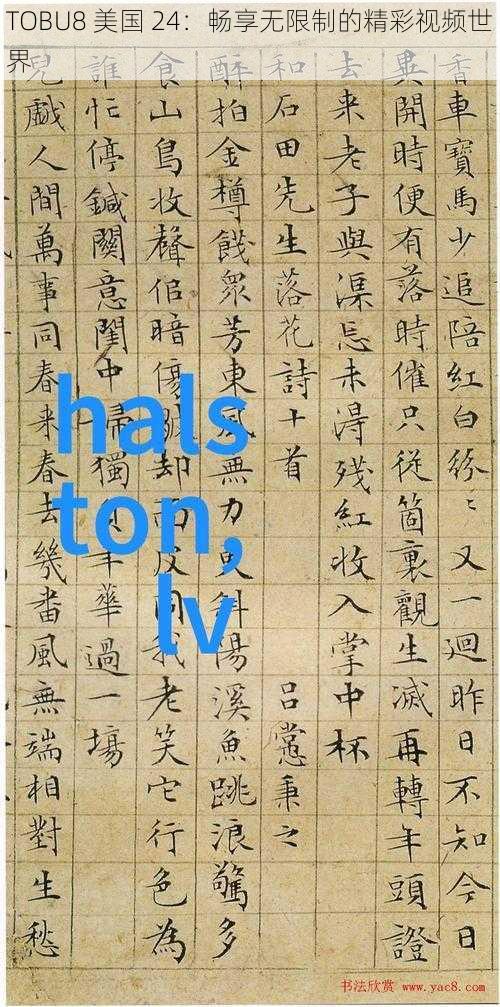 TOBU8 美国 24：畅享无限制的精彩视频世
界
香車寶馬少追陪紅白紛〻又一迴昨日不知今日
異開時便有落時催只從箇裏觀生滅再轉年頭證
去来老子與渠忘未淂殘紅收入掌中杯
和石田先生落花詩十首 呂㦂秉之
醉拍金樽餞眾芳東風無力更斜陽溪魚跳浪驚多
食山鳥收聲佀暗傷却同我老笑它行色為
誰忙停鍼闗意閨中婦獨年華過一塲
兒戲人間萬事同春来春去幾畨風無端相對生愁
hals
ton,
lv
书法欣赏 www.yac8.com